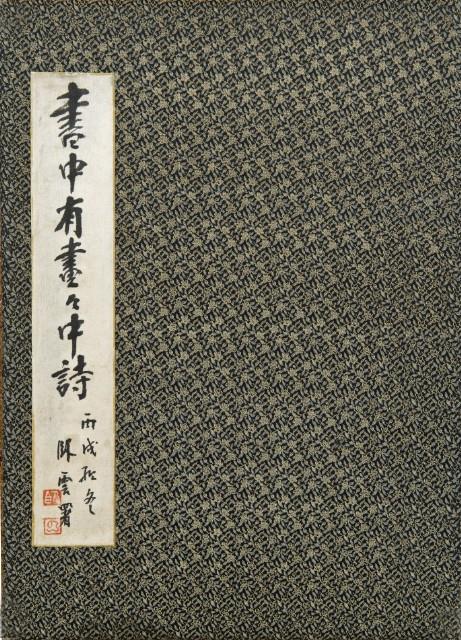 書中有畫々中詩
丙戌初冬
臥雲署